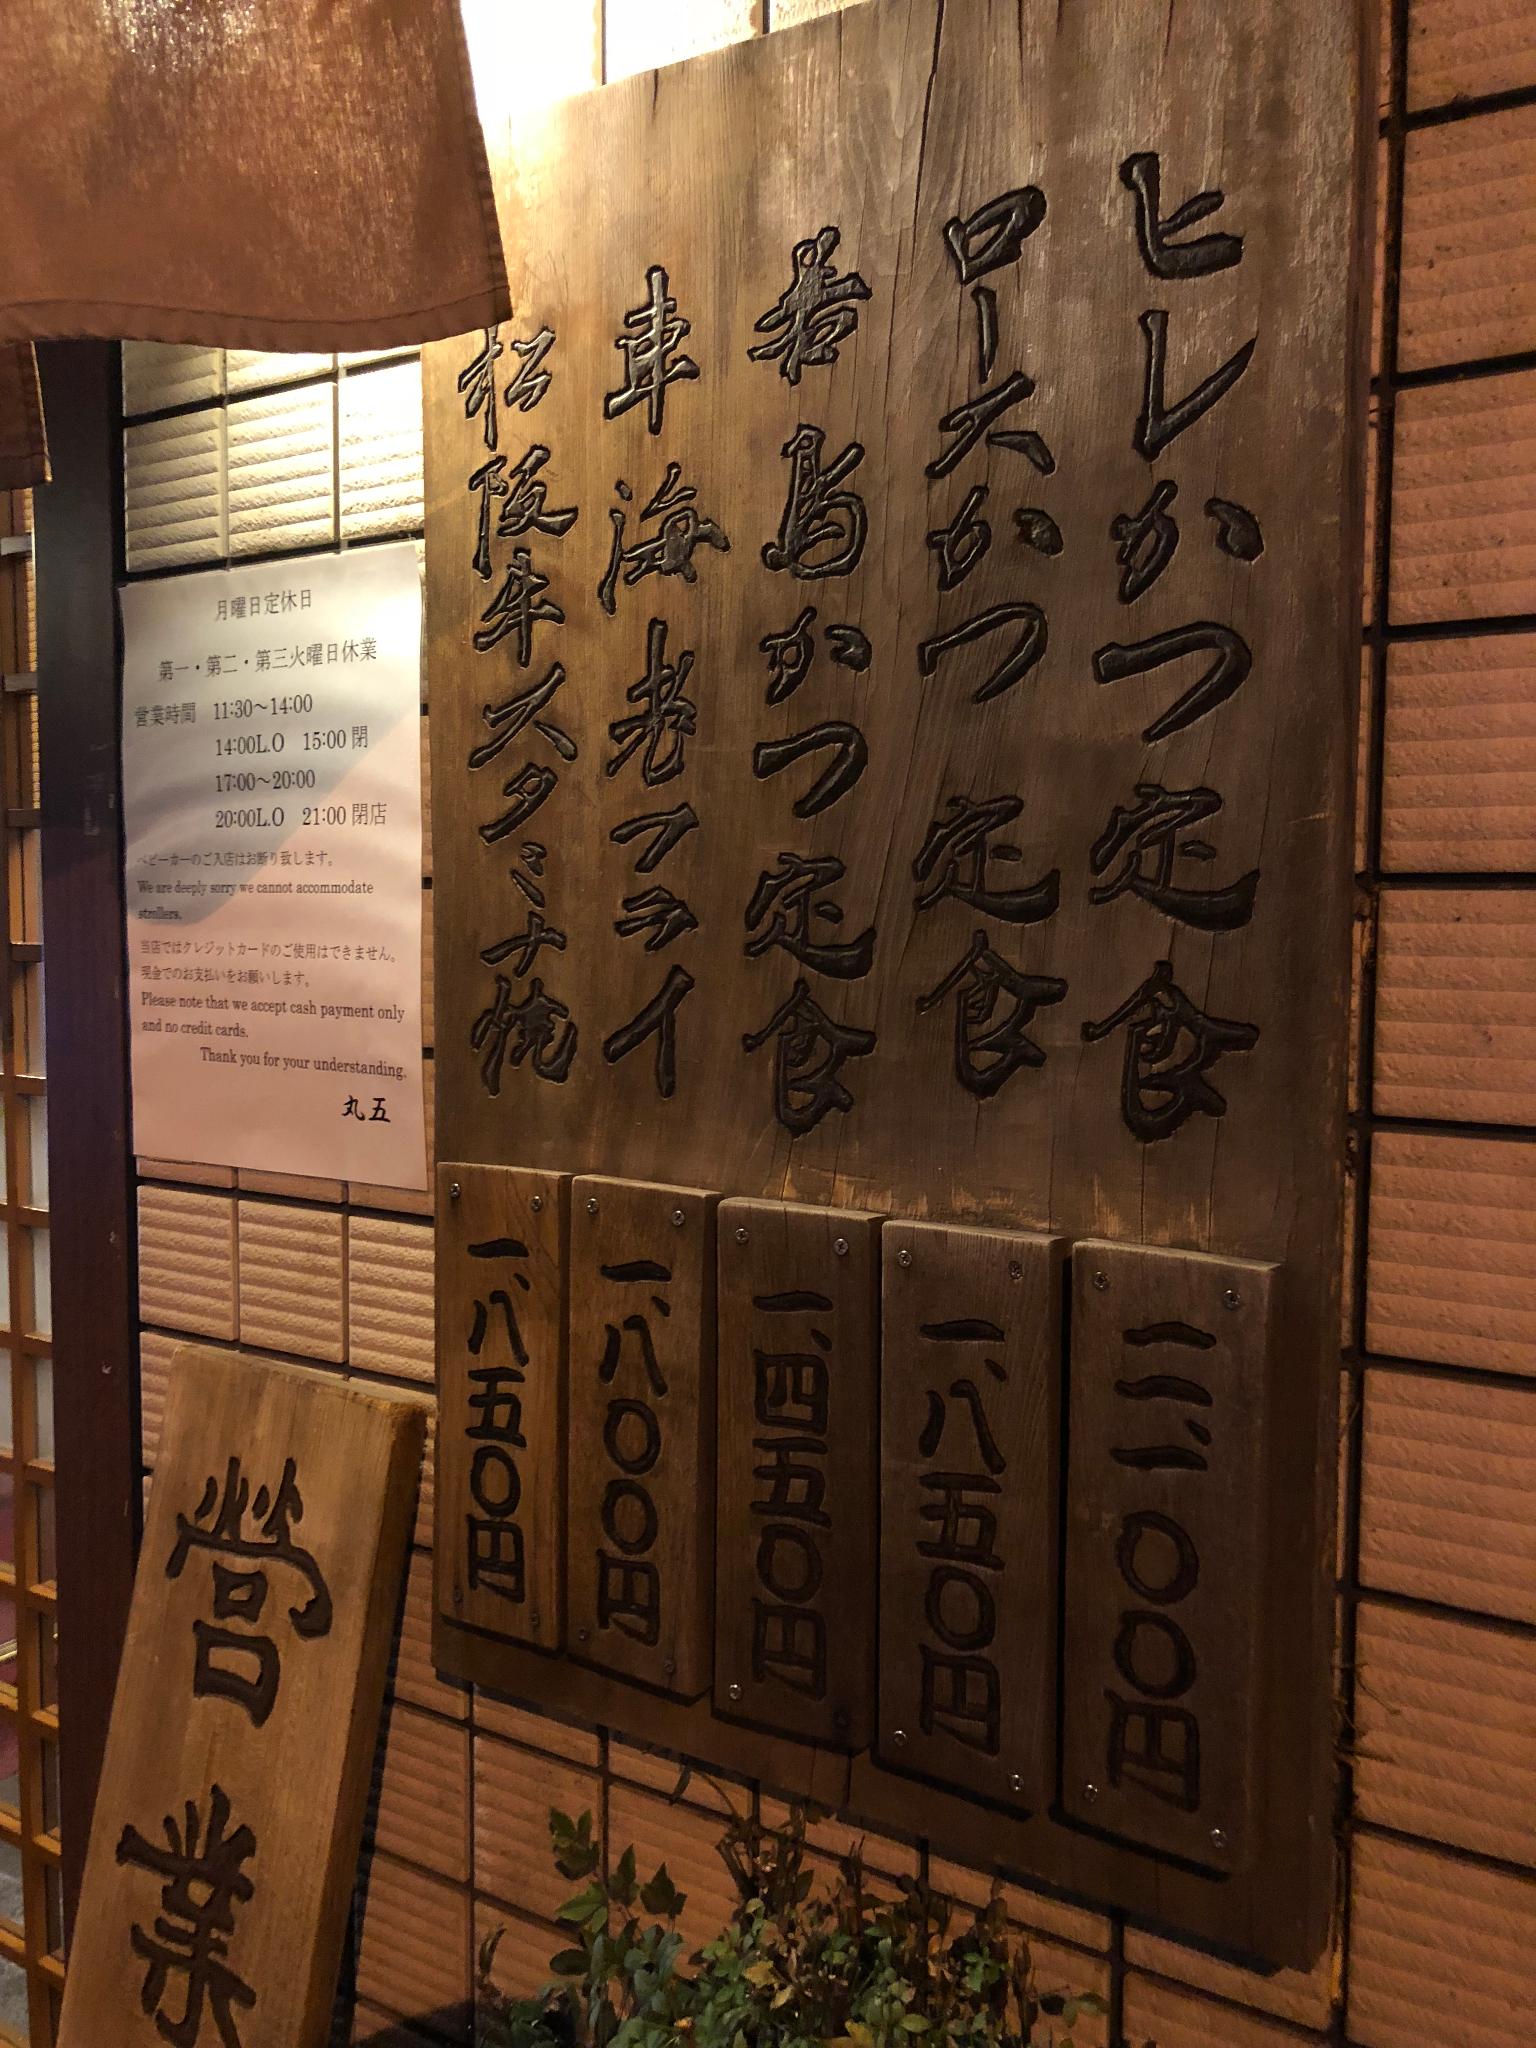 ヒレかつ定食
二、一〇〇円
ロースかつ定食
一、八五〇円
若鳥かつ定食
一、四五〇円
車海老フライ
一、八〇〇円
松阪牛スタミナ焼
一、八五〇円
月曜日定休日
第一・第二・第三火曜日休業
営業時間 11:30～14:00
14:00L.O 15:00 閉
17:00～20:00
20:00L.O 21:00 閉店
ベビーカーのご入店はお断り致します。
We are deeply sorry we cannot accommodate
strollers.
当店ではクレジットカードのご使用はできません。
現金でのお支払いをお願いします。
Please note that we accept cash payment only
and no credit cards.
Thank you for your understanding.
丸五
営業